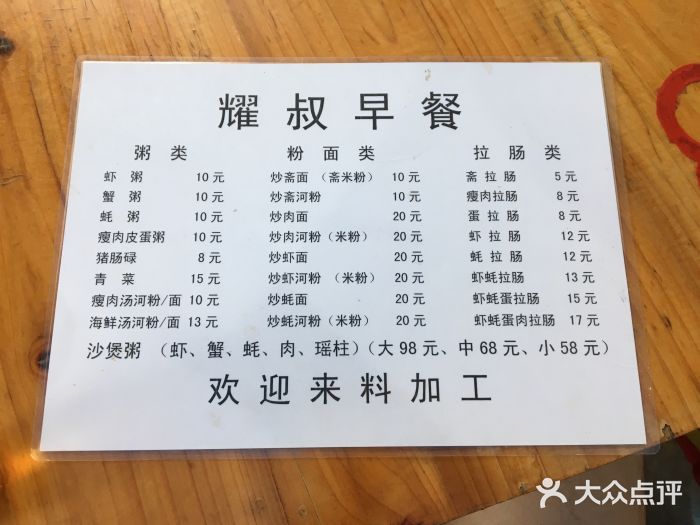 耀叔早餐
粥类 粉面类 拉肠类
虾粥 10元 炒斋面（斋米粉） 10元 斋拉肠 5元
蟹粥 10元 炒斋河粉 10元 瘦肉拉肠 8元
蚝粥 10元 炒肉面 20元 蛋拉肠 8元
瘦肉皮蛋粥 10元 炒肉河粉（米粉） 20元 虾拉肠 12元
猪肠碌 8元 炒虾面 20元 蚝拉肠 12元
青菜 15元 炒虾河粉（米粉） 20元 虾蚝拉肠 13元
瘦肉汤河粉/面 10元 炒蚝面 20元 虾蚝蛋拉肠 15元
海鲜汤河粉/面 13元 炒蚝河粉（米粉） 20元 虾蚝蛋肉拉肠 17元
沙煲粥（虾、蟹、蚝、肉、瑶柱）（大98元、中68元、小58元）
欢迎来料加工
大众点评